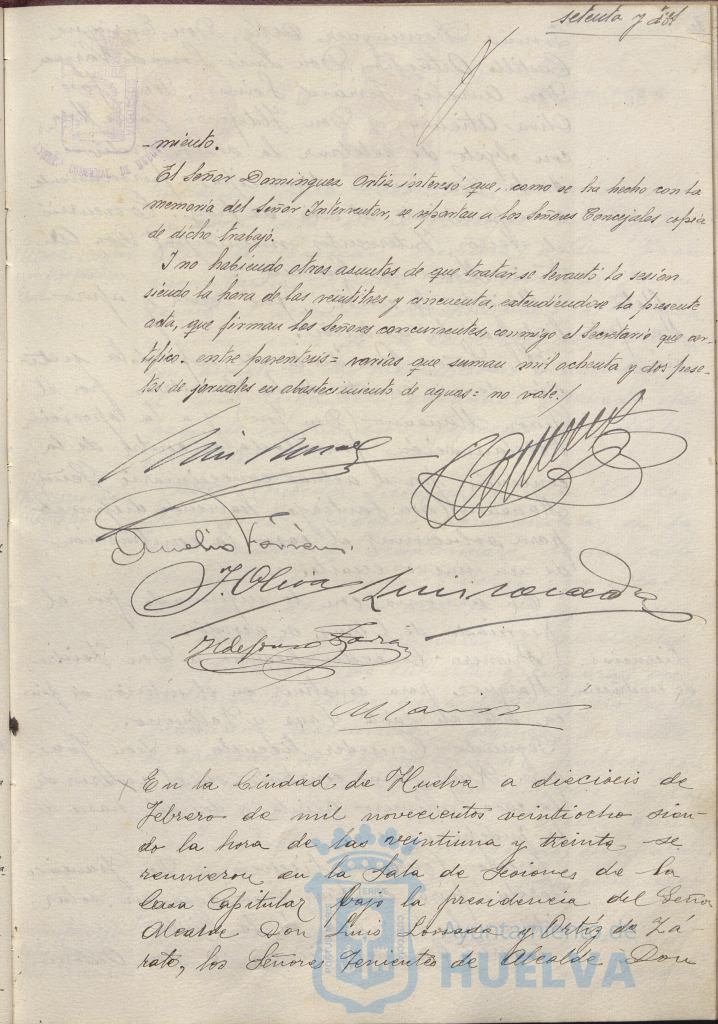 setenta y dos
miento.
El Señor Dominguez Ortiz interesó que, como se ha hecho con la
memoria del Señor Interventor, se repartan a los Señores Concejales copia
de dicho trabajo.
Y no habiendo otros asuntos de que tratar se levantó la sesion
siendo la hora de las veintitres y cincuenta, extendiendose la presente
acta, que firman los Señores concurrentes, conmigo el Secretario que cer-
tifico. entre parentesis= varias que suman mil ochenta y dos pese-
tas de jornales en abastecimiento de aguas= no vale./
J. Oliva
En la Ciudad de Huelva a dieciseis de
Febrero de mil novecientos veintiocho sien-
do la hora de las veintiuna y treinta, se
reunieron en la Sala de Sesiones de la
Casa Capitular bajo la presidencia del Señor
Alcalde Don Luis Lossada y Ortiz de Zá-
rate, los Señores Tenientes de Alcalde Don
Ayuntamiento de
HUELVA